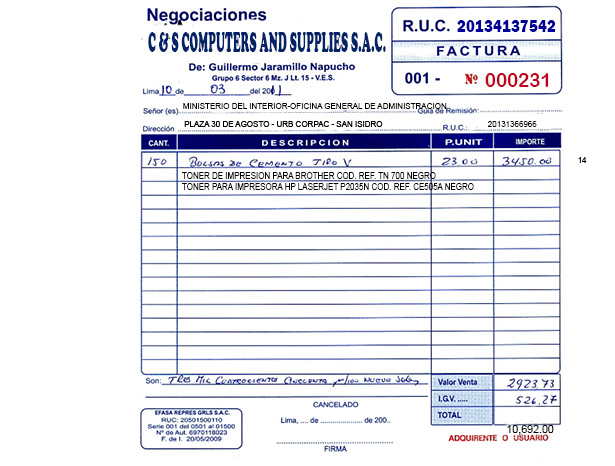 Negociaciones
C & S COMPUTERS AND SUPPLIES S.A.C.
De: Guillermo Jaramillo Napucho
Grupo 6 Sector 6 Mz. J Lt. 15 - V.E.S.
R.U.C. 20134137542
FACTURA
001 - Nº 000231
Lima 10 de 03 del 2001
Señor (es) MINISTERIO DEL INTERIOR-OFICINA GENERAL DE ADMINISTRACION
Guia de Remisión:
Dirección PLAZA 30 DE AGOSTO - URB CORPAC - SAN ISIDRO R.U.C.: 20131366966
CANT. DESCRIPCION P.UNIT IMPORTE
150 Bolsas de Cemento Tipo V 23.00 3450.00
14
TONER DE IMPRESION PARA BROTHER COD. REF. TN 700 NEGRO
TONER PARA IMPRESORA HP LASERJET P2035N COD. REF. CE505A NEGRO
Son: Tres Mil Cuatrocientos Cincuenta y/100 Nuevo Soles
Valor Venta 2923.73
I.G.V. ..... 526.27
TOTAL
10,692.00
CANCELADO
Lima, .... de ..................... de 200..
FIRMA
EFASA REPRES GRLS S.A.C.
RUC: 20501500110
Serie 001 del 0501 al 01500
Nº de Aut. 6970118023
F. de I. 20/05/2009
ADQUIRENTE O USUARIO